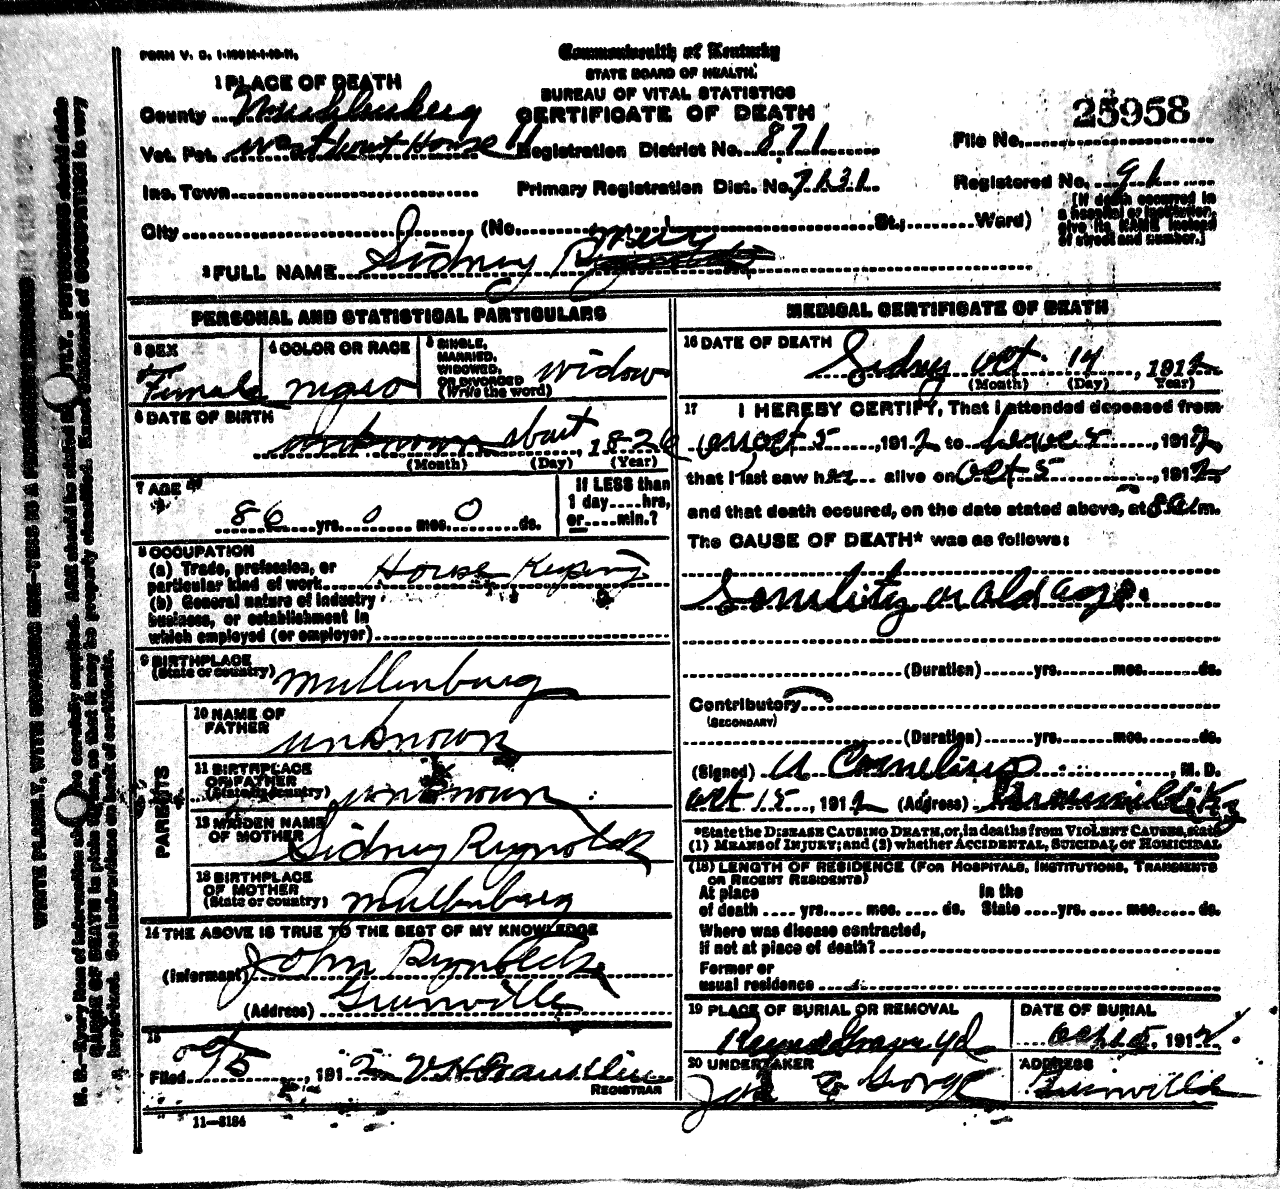 FORM V. D. 1-
Commonwealth of Kentucky
STATE BOARD OF HEALTH.
BUREAU OF VITAL STATISTICS
CERTIFICATE OF DEATH
1 PLACE OF DEATH
County Muhlenberg
Vot. Pct. Westhouse
Registration District No. 871
25958
File No.
Ins. Town
Primary Registration Dist. No. 7131
Registered No. 91
City (No. St.; Ward)
[If death occurred in a hospital or institution, give its NAME instead of street and number.]
2 FULL NAME Sidney
PERSONAL AND STATISTICAL PARTICULARS
3 SEX
Female
4 COLOR OR RACE
negro
5 SINGLE, MARRIED, WIDOWED, OR DIVORCED (Write the word)
widow
6 DATE OF BIRTH
unknown about, 1826
(Month) (Day) (Year)
7 AGE
86 yrs. 0 mos. 0 ds.
If LESS than 1 day hrs, or min.?
8 OCCUPATION
(a) Trade, profession, or particular kind of work House Keeping
(b) General nature of industry business, or establishment in which employed (or employer)
9 BIRTHPLACE
(State or country) Mullenburg
PARENTS
10 NAME OF FATHER
unknown
11 BIRTHPLACE OF FATHER
(State or country) unknown
12 MAIDEN NAME OF MOTHER
Sidney Rynolds
13 BIRTHPLACE OF MOTHER
(State or country) Mullenburg
14 THE ABOVE IS TRUE TO THE BEST OF MY KNOWLEDGE
(Informant) John Rynolds
(Address) Greenville
15
Filed 191 2
REGISTRAR
11-3184
MEDICAL CERTIFICATE OF DEATH
16 DATE OF DEATH
Sidney Oct. 14, 1912
(Month) (Day) Year)
17 I HEREBY CERTIFY, That I attended deceased from
Oct 5, 1912 to, 1912
that I last saw her alive on Oct 5 1912
and that death occured, on the date stated above, at 8 a m.
The CAUSE OF DEATH* was as follows:
or old age.
(Duration) yrs. mos. ds.
Contributory
(SECONDARY)
(Duration) yrs. mos. ds.
(Signed) Cornelius, M. D.
Oct 15, 1912 (Address) Greenville Ky
*State the DISEASE CAUSING DEATH, or, in deaths from VIOLENT CAUSES, state
(1) MEANS OF INJURY; and (2) whether ACCIDENTAL, SUICIDAL or HOMICIDAL
(18) LENGTH OF RESIDENCE (FOR HOSPITALS, INSTITUTIONS, TRANSIENTS
OR RECENT RESIDENTS)
At place In the
of death yrs. mos. ds. State yrs. mos. ds.
Where was disease contracted,
if not at place of death?
Former or
usual residence
19 PLACE OF BURIAL OR REMOVAL
DATE OF BURIAL
, 1912
20 UNDERTAKER
George
ADDRESS
Greenville
WRITE PLAINLY, WITH UNFADING INK—THIS IS A PERMANENT RECORD
N. B.—Every item of information should be carefully supplied. AGE should be stated EXACTLY. PHYSICIANS should state
CAUSE OF DEATH in plain terms, so that it may be properly classified. Exact statement of OCCUPATION is very
important. See instructions on back of certificate.